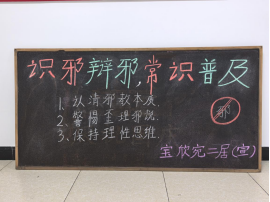 识邪辩邪,常识普及
1、认清邪教本质.
2、警惕歪理邪说.
3、保持理性思维.
邪
宝欣宛二居(宣)